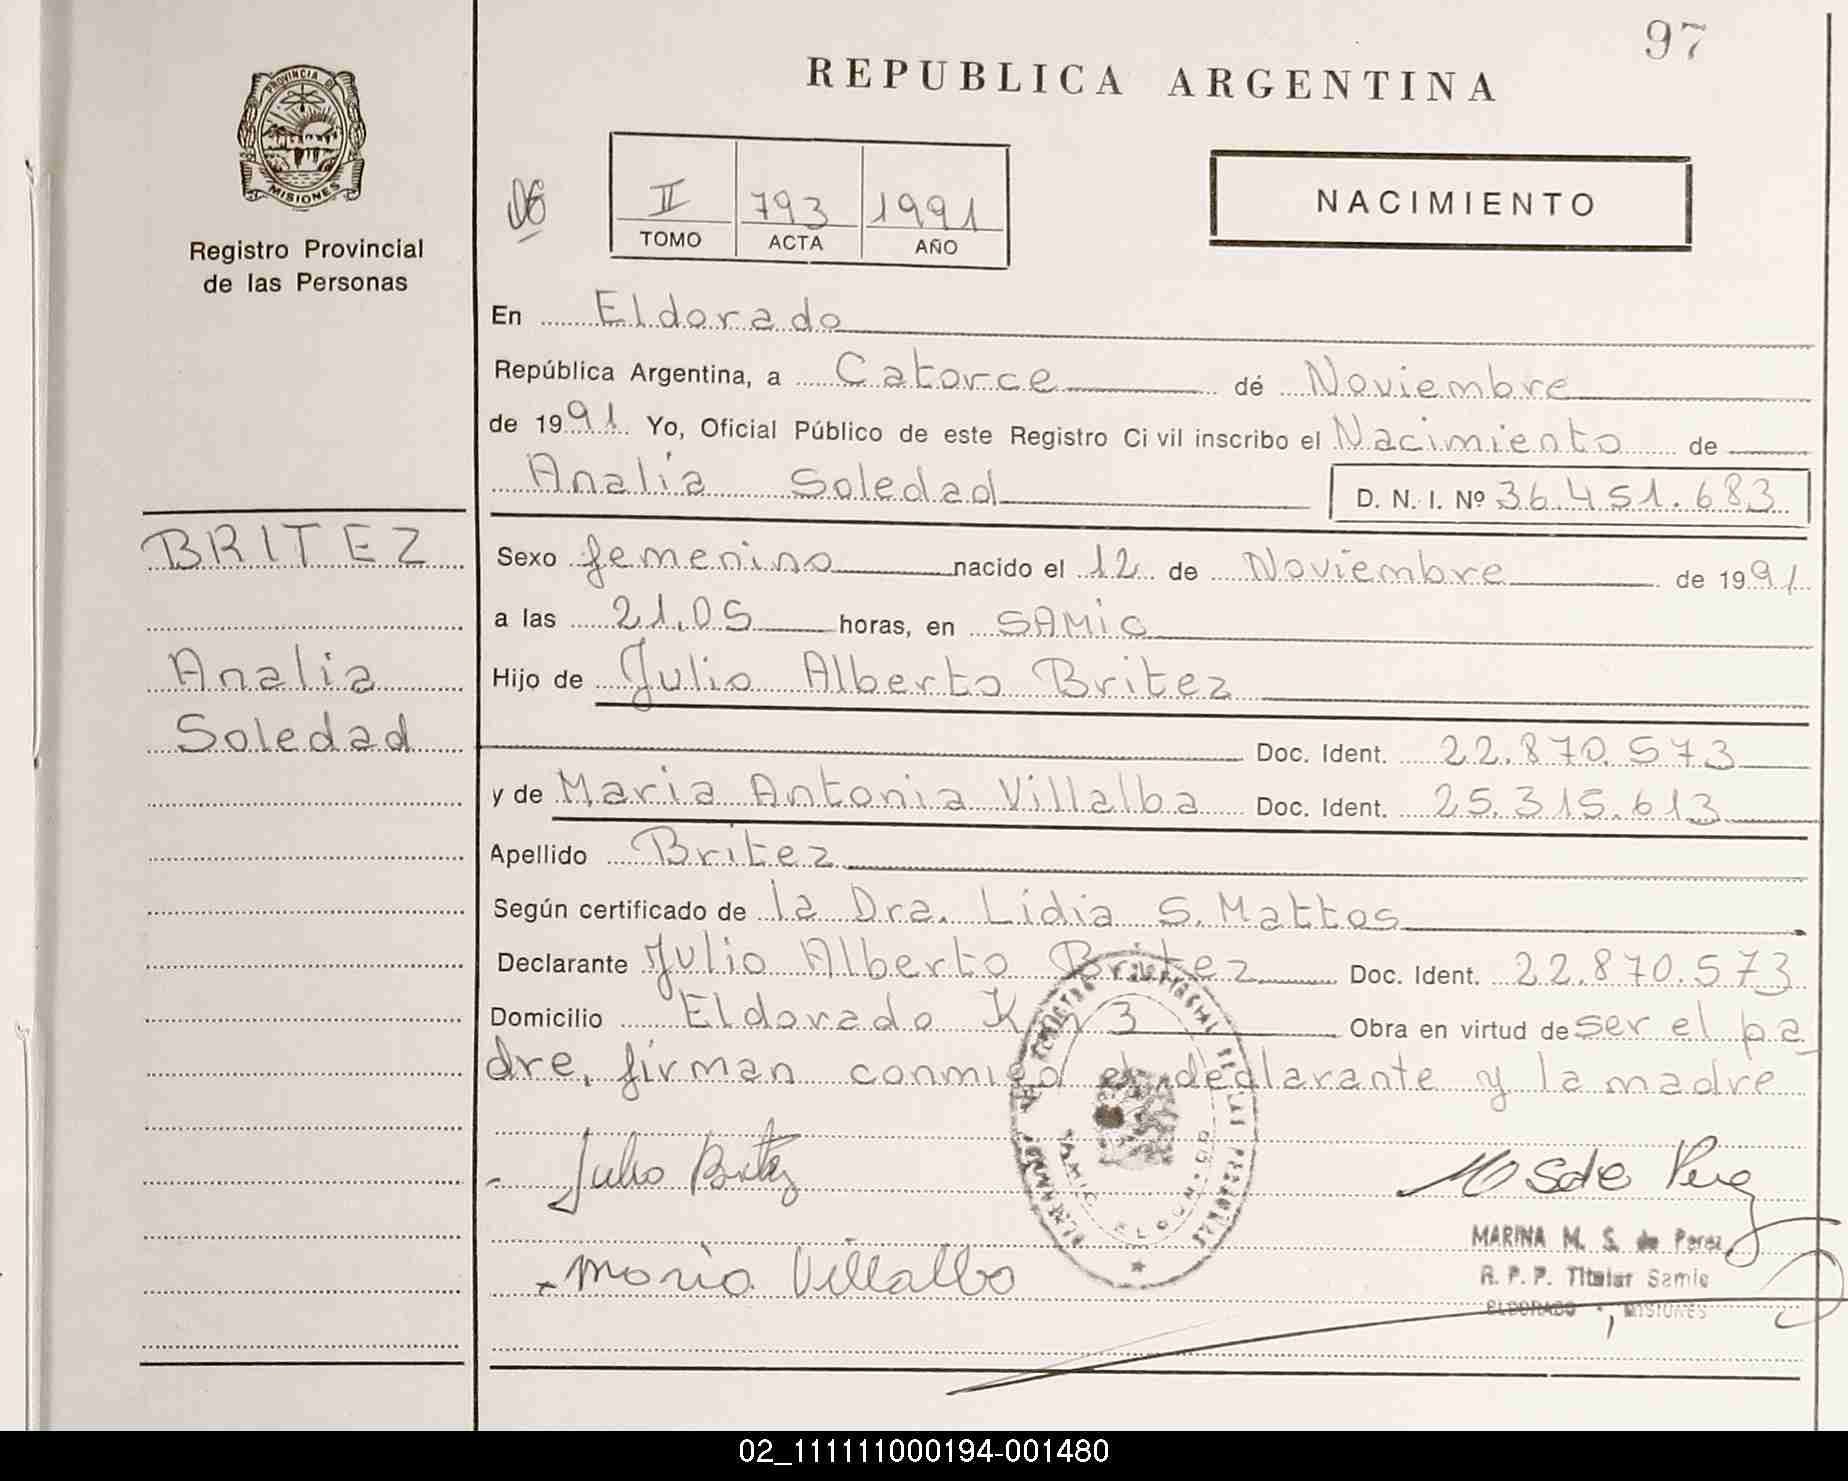 97
REPUBLICA ARGENTINA
PROVINCIA DE
MISIONES
Registro Provincial
de las Personas
II 793 1991
TOMO ACTA AÑO
NACIMIENTO
En Eldorado
República Argentina, a Catorce dé Noviembre
de 1991 Yo, Oficial Público de este Registro Civil inscribo el Nacimiento de
Analía Soledad D. N. I. Nº 36.451.683
BRITEZ
Analía
Soledad
Sexo femenino nacido el 12 de Noviembre de 1991
a las 21,05 horas, en SAMIC
Hijo de Julio Alberto Britez
Doc. Ident. 22.870.573
y de Maria Antonia Villalba Doc. Ident. 25.315.613
Apellido Britez
Según certificado de la Dra. Lidia S. Mattos
Declarante Julio Alberto Britez Doc. Ident. 22.870.573
Domicilio Eldorado Km 3 Obra en virtud de ser el pa_
dre, firman conmigo el declarante y la madre
Julio Britez
Maria Villalba
MARINA M. S. de Perez
R. P. P. Titular Samic
ELDORADO - MISIONES
02_111111000194-001480